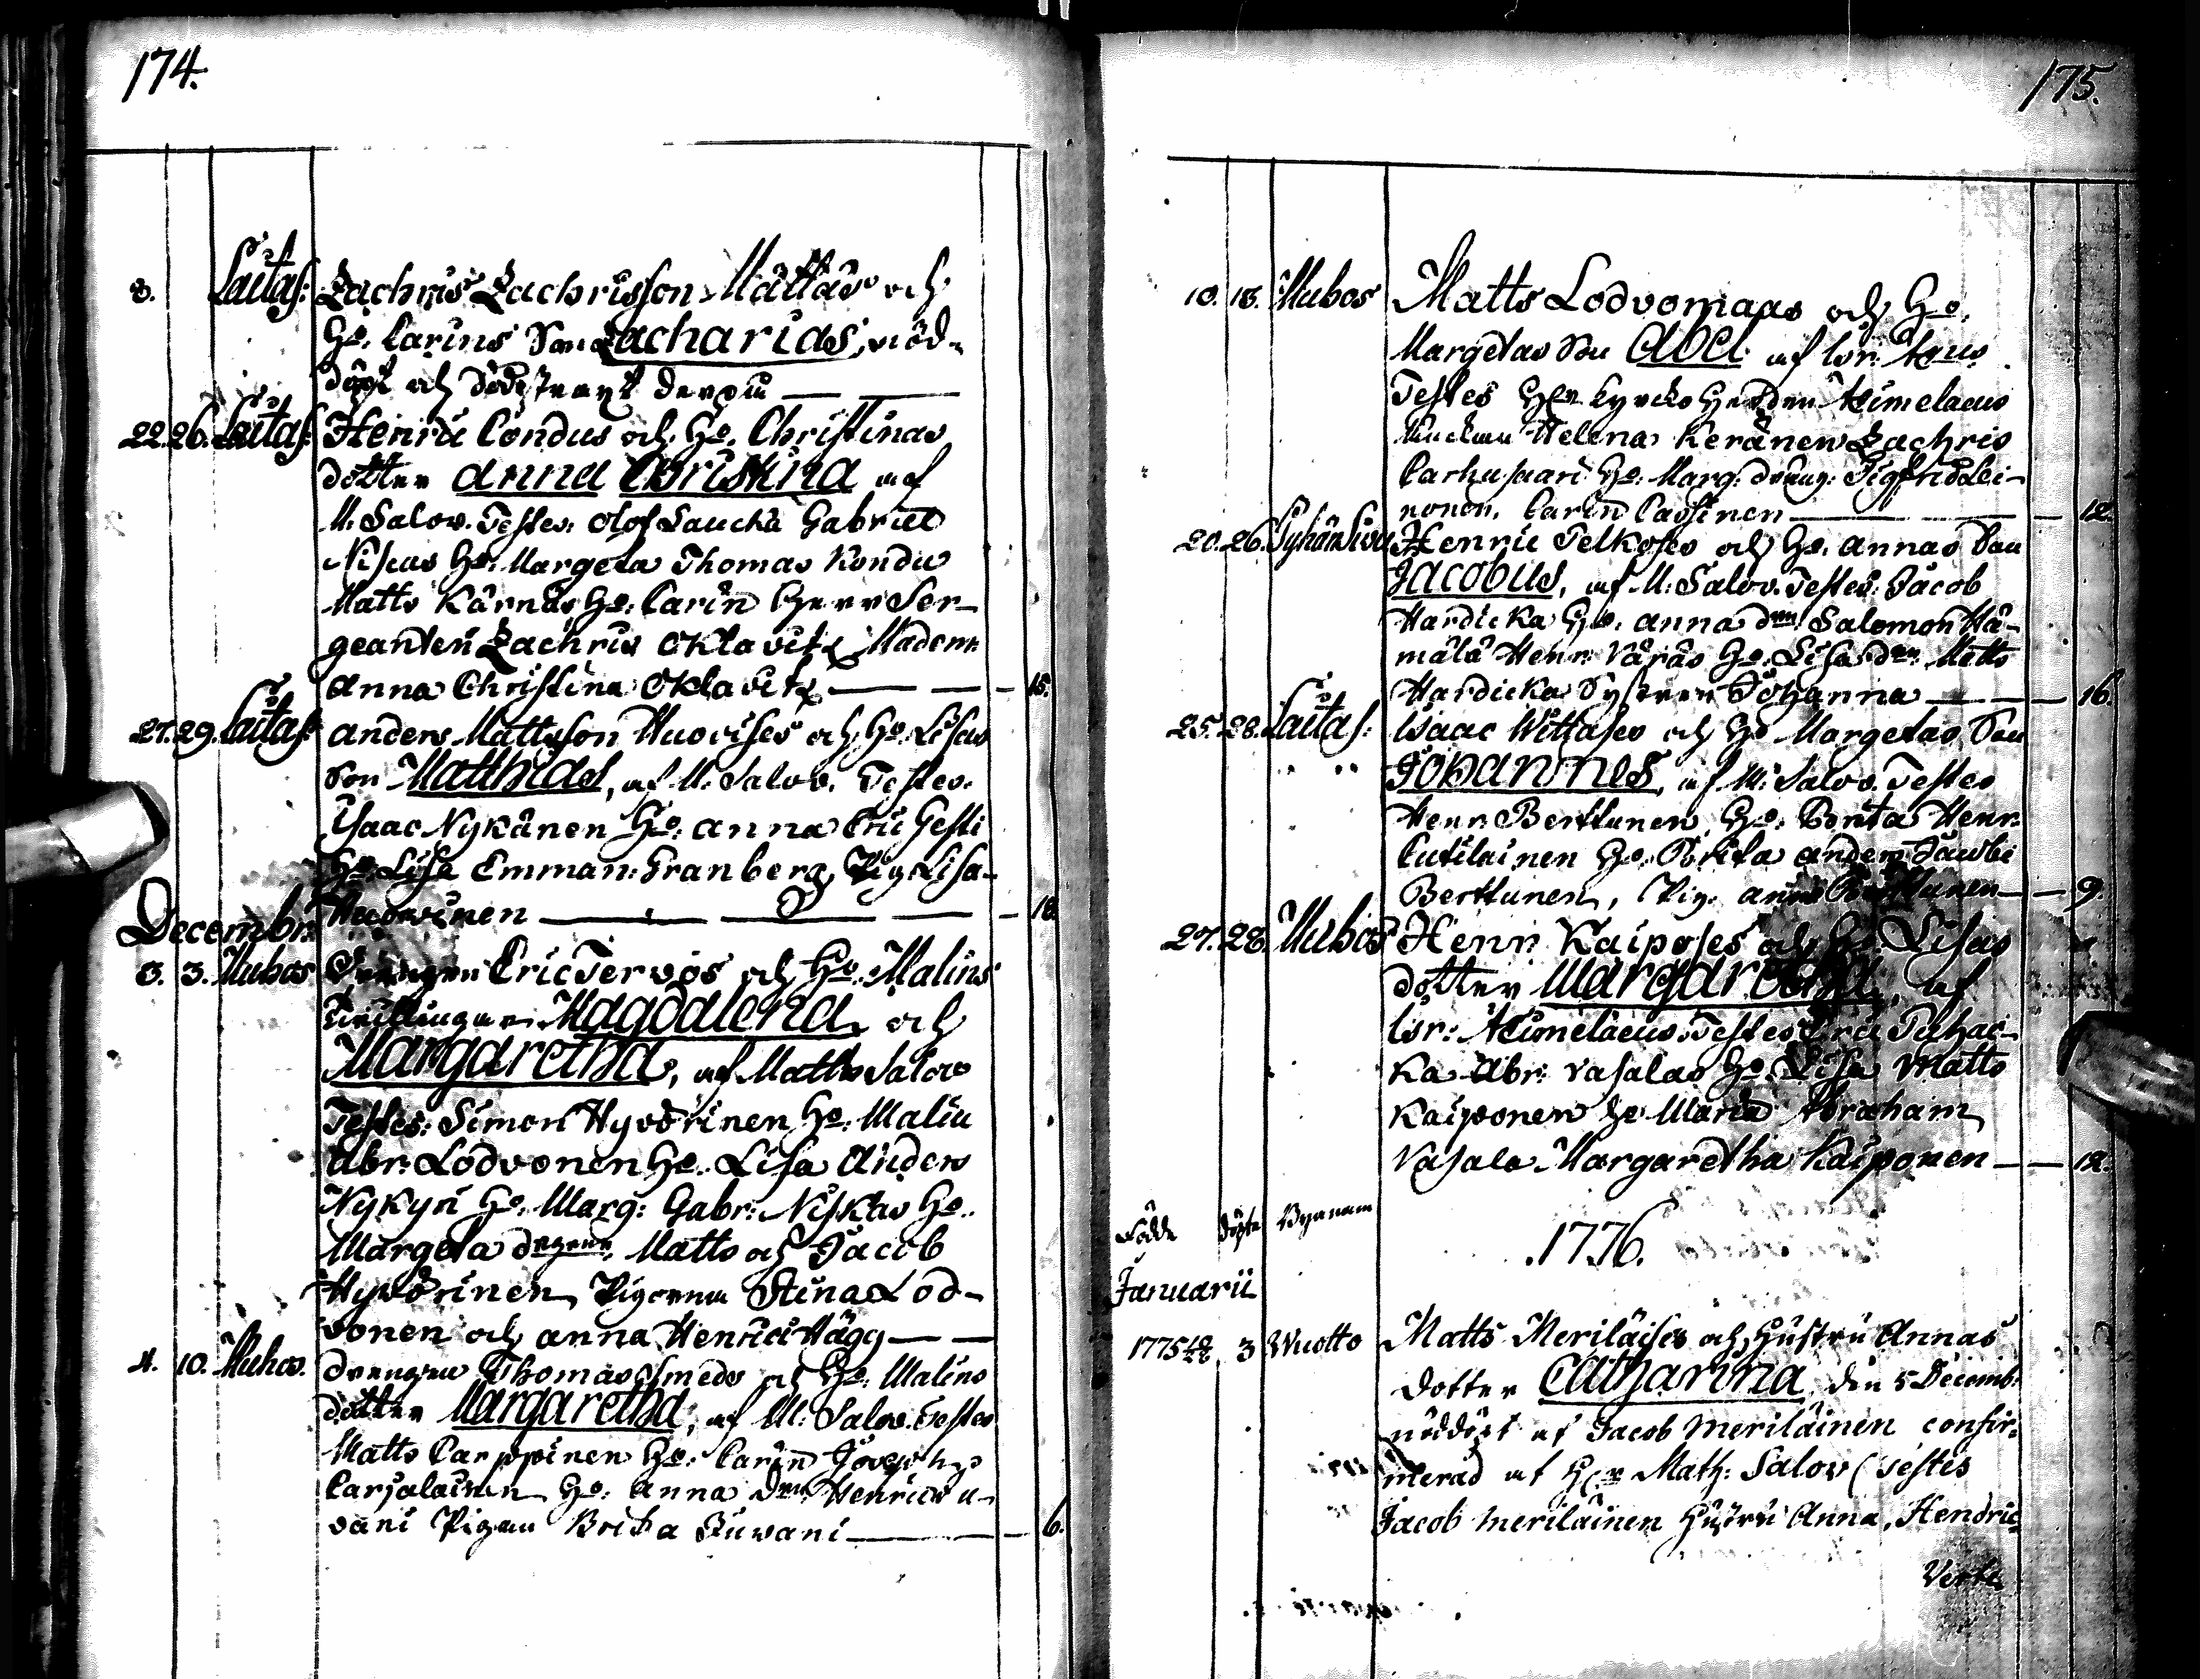 174.
8. Laitas: Zachris Zachrisson Mättäs och
Ho. Carins Son Zacharias, nöd-
döpt och död straxt derpå
22. 26. Laitas: Henric Condus och Ho. Christinas
dotter Anna Christina af
M. Salov. Testes: Olof Laucka Gabriel
Niskas Ho. Margeta Thomas Kondu
Matts Kärnäs Ho: Carin Herr Ser-
geanten Zachris Oklavitz Madem:
Anna Christina Oklavitz — 15.
27. 29. Laitas: Anders Mattsson Huovises och Ho. Lisas
Son Matthias, af M. Salov. Testes.
Isaac Nykänen Ho: Anna Eric Gesti
Ho. Lisa Emman: Granberg, Pig. Lisa
Huovinen — 10.
Decembr:
3. 3. Muhos Drängen Eric Tervos och Ho. Malins
Tvillingar Magdalena och
Margaretha, af Matth Salov
Testes: Simon Hyvörinen Ho: Malin
Abr. Lodvonen Ho. Lisa Anders
Nykyri Ho. Marg: Gabr: Niskas Ho.
Margeta drgne Matts och Jacob
Hyvörinen Pigorna Stina Lod-
vonen och Anna Henrici Hägg —
4. 10. Muhos. Drengen Thomas Smeds och Ho: Malins
dotter Margaretha, af M. Salov. Testes
Matts Carppinen Ho: Carin Joseph
Carjalainen Ho: Anna drn Henric u-
vani Pigan Brita Juvani — 6.
175.
10. 18. Muhos Matts Lodvomaas och Ho.
Margetas Son Abel af
Testes Her Kyrcko Herden Heimelaeus
Helena Keränen Zachris
Carhusaari Ho: Marg: dräng: Sigfrid Lei-
nonen, Carin Cassinen — 12.
20. 26. Henric Telkoses och Ho. Annas Son
Jacobus, af M: Salov. Testes: Jacob
Hardicka Ho. Anna drn Salomon Hä-
mälä Henr: Väräs Ho. Lisa drn. Matts
Hardicka Systern Johanna — 16.
25. 28. Laitas: Isaac Wittases och Ho Margetas Son
Johannes, af M: Salov. Testes
Henr: Berttunen Ho: Brita Henr:
Cutilainen Ho. Brita Anders
Berttunen, Pig. Anna Berttunen — 9.
27. 28. Muhos Henr: Kaiposes och Ho Lisas
dotter Margaretha, af
Heimelaeus. Testes Eric Tuhac-
ka Abr: Vasalas Ho. Lisa Matts
Kaiponen Ho Maria Abraham
Vasala Margaretha Kaiponen — 12.
Födde döpte Bynamn
1776.
Januarii
1775 3 Wuotto Matts Meriläises och Hustru Annas
Dotter Catharina, den 5 Decemb:
nöddöpt af Jacob Meriläinen confir-
merad af Her Math: Salov (Testes
Jacob Meriläinen Hustru Anna, Hendric
Verte